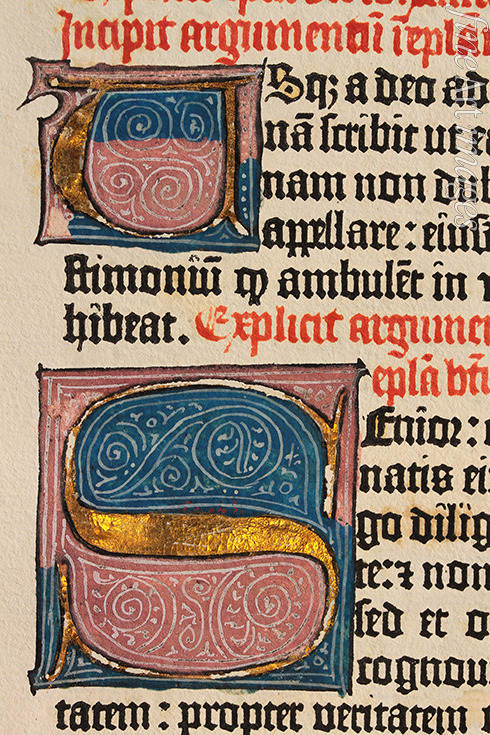 Incipit argumentū i epl
Usq; a deo ad
nā scribit ut ea
nam non deb
appellare : eius
stimoniū ꝙ ambulēt in v
hibeat. Explicit argumen
eplā btī
Senior :
natis ei
go dilig
te : ⁊ non
sed et o
cognou
tatem : propter veritatem
fineartimages